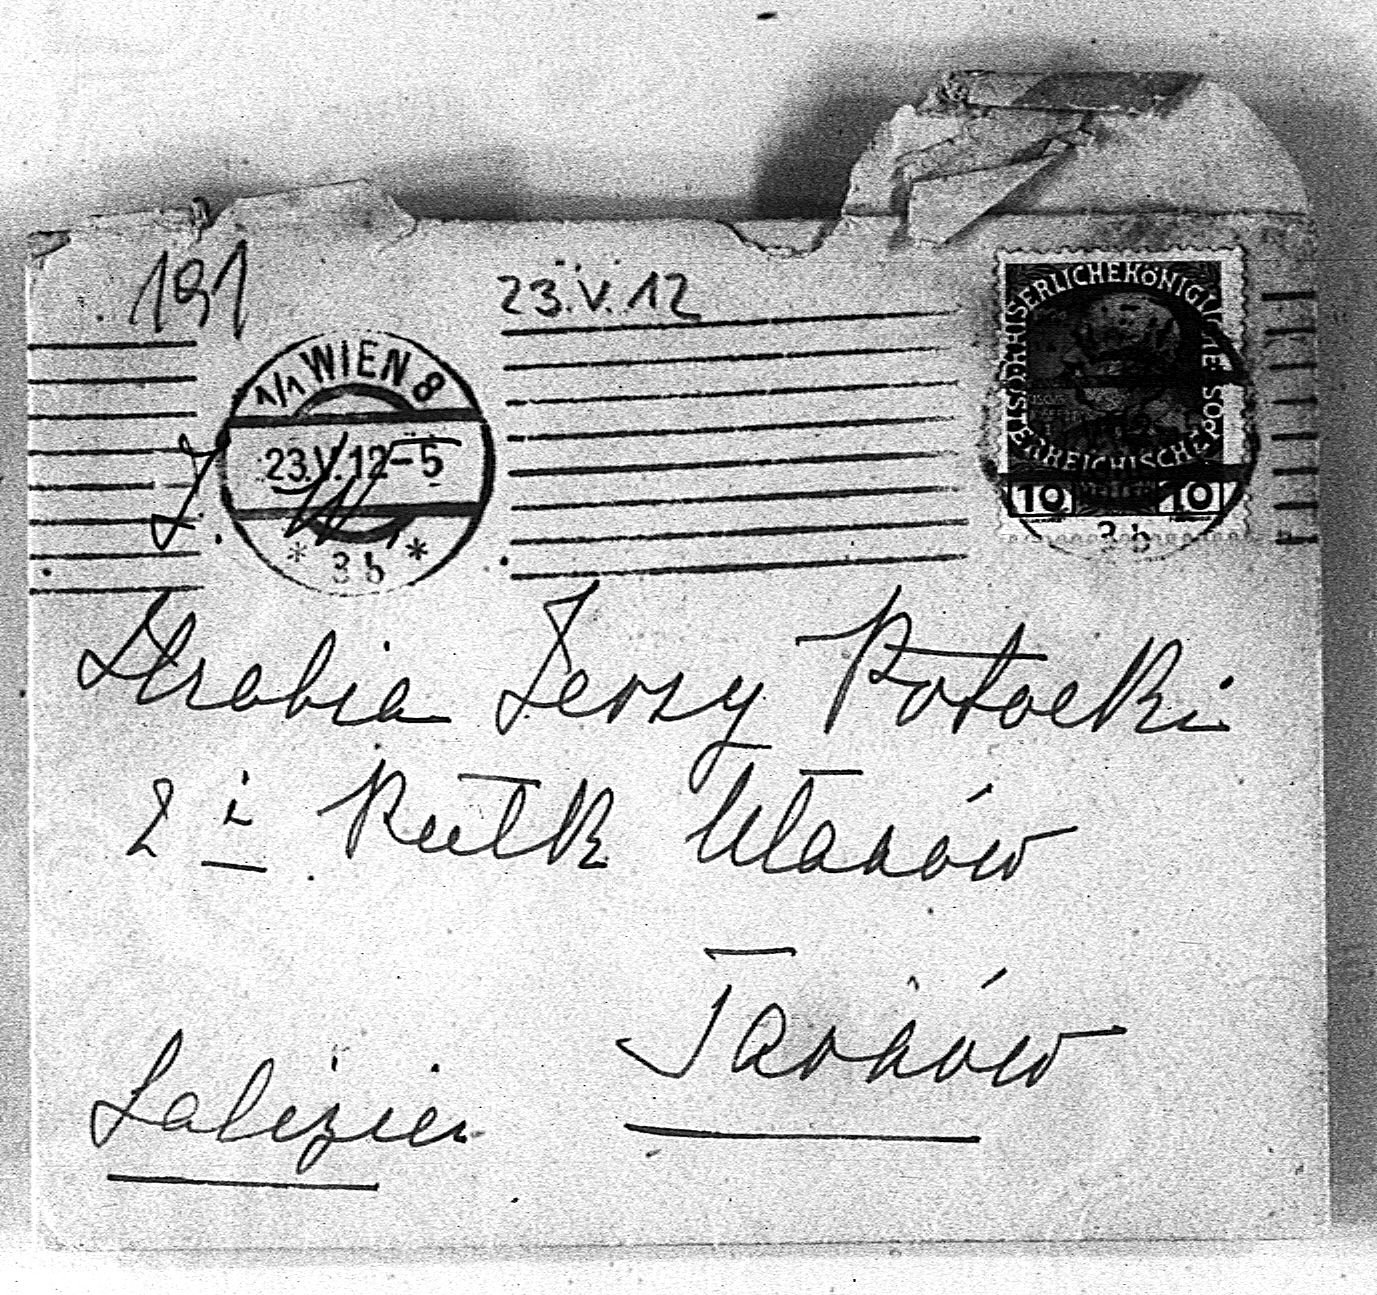 191
23.V.12
1/1 WIEN 8
23.V.12-5
* 3b *
KAISERLICHE KÖNIGLICHE
ÖSTERREICHISCHE POST
10 HELLER 10
3b
J. W.
Hrabia Jerzy Potocki
2 i Pułk Ułanów
Tarnów
Galizien